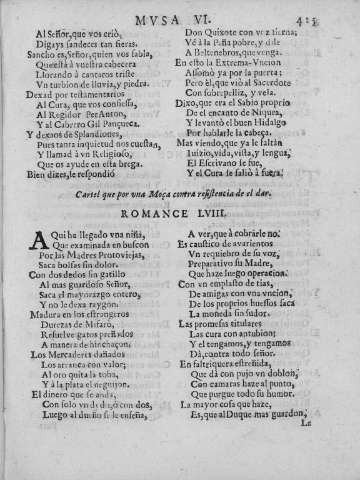 MVSA VI.
415
Al Señor, que vos criò,
Digays sandeces tan fieras.
Sancho es, Señor, quien vos fabla,
Que està à vuestra cabecera
Llorando à cantaros triste
Vn turbion de lluvia, y piedra.
Dexad por testamentarios
Al Cura, que vos confiessa,
Al Regidor Per Anton,
Y al Cabrero Gil Pançueca.
Y dexaos de Splandiones,
Pues tanta inquietud nos cuestan,
Y llamad à vn Religioso,
Que os ayude en esta brega.
Bien dizes, le respondiò
Don Quixote con voz tierna;
Vè à la Peña pobre, y dile
A Beltenebros, que venga.
En esto la Extrema-Vncion
Assomò ya por la puerta;
Pero èl, que viò al Sacerdote
Con sobrepelliz, y vela.
Dixo, que era el Sabio proprio
De el encanto de Niquea,
Y levantò el buen Hidalgo
Por hablarle la cabeça.
Mas viendo, que ya le faltan
Iuizio, vida, vista, y lengua,
El Escrivano se fue,
Y el Cura se saliò à fuera.
Cartel que por vna Moça contra resistencia de el dar.
ROMANCE LVIII.
AQui ha llegado vna niña,
Que examinada en buscon
Por las Madres Protoviejas,
Saca bolsas sin dolor.
Con dos dedos sin gatillo
Al mas guardoso Señor,
Saca el mayorazgo entero,
Y no le dexa raygon.
Madura en los estrangeros
Durezas de Mitarò,
Resuelve gatos preñados
A manera de hinchaçon.
Los Mercaderes dañados
Los arranca con valor;
Al oro quita la toba,
Y à la plata el neguijon.
El dinero que se anda,
Con solo vn dedo, ò con dos,
Luego al dueño se le enseña,
A ver, que à cobrarle no.
Es caustico de avarientos
Vn requiebro de su voz,
Preparativo su Madre,
Que haze luego operacion.
Con vn emplasto de tias,
De amigas con vna vncion,
De los proprios huessos saca
La moneda sin sudor.
Las promesas titulares
Las cura con antubion;
Y el tengamos, y tengamos
Dà, contra todo señor.
En faltriquera estreñida,
Que dà con pujo vn doblon,
Con camaras haze al punto,
Que purgue todo su humor.
La mayor cosa que haze,
Es, que al Duque mas guardon,
Le